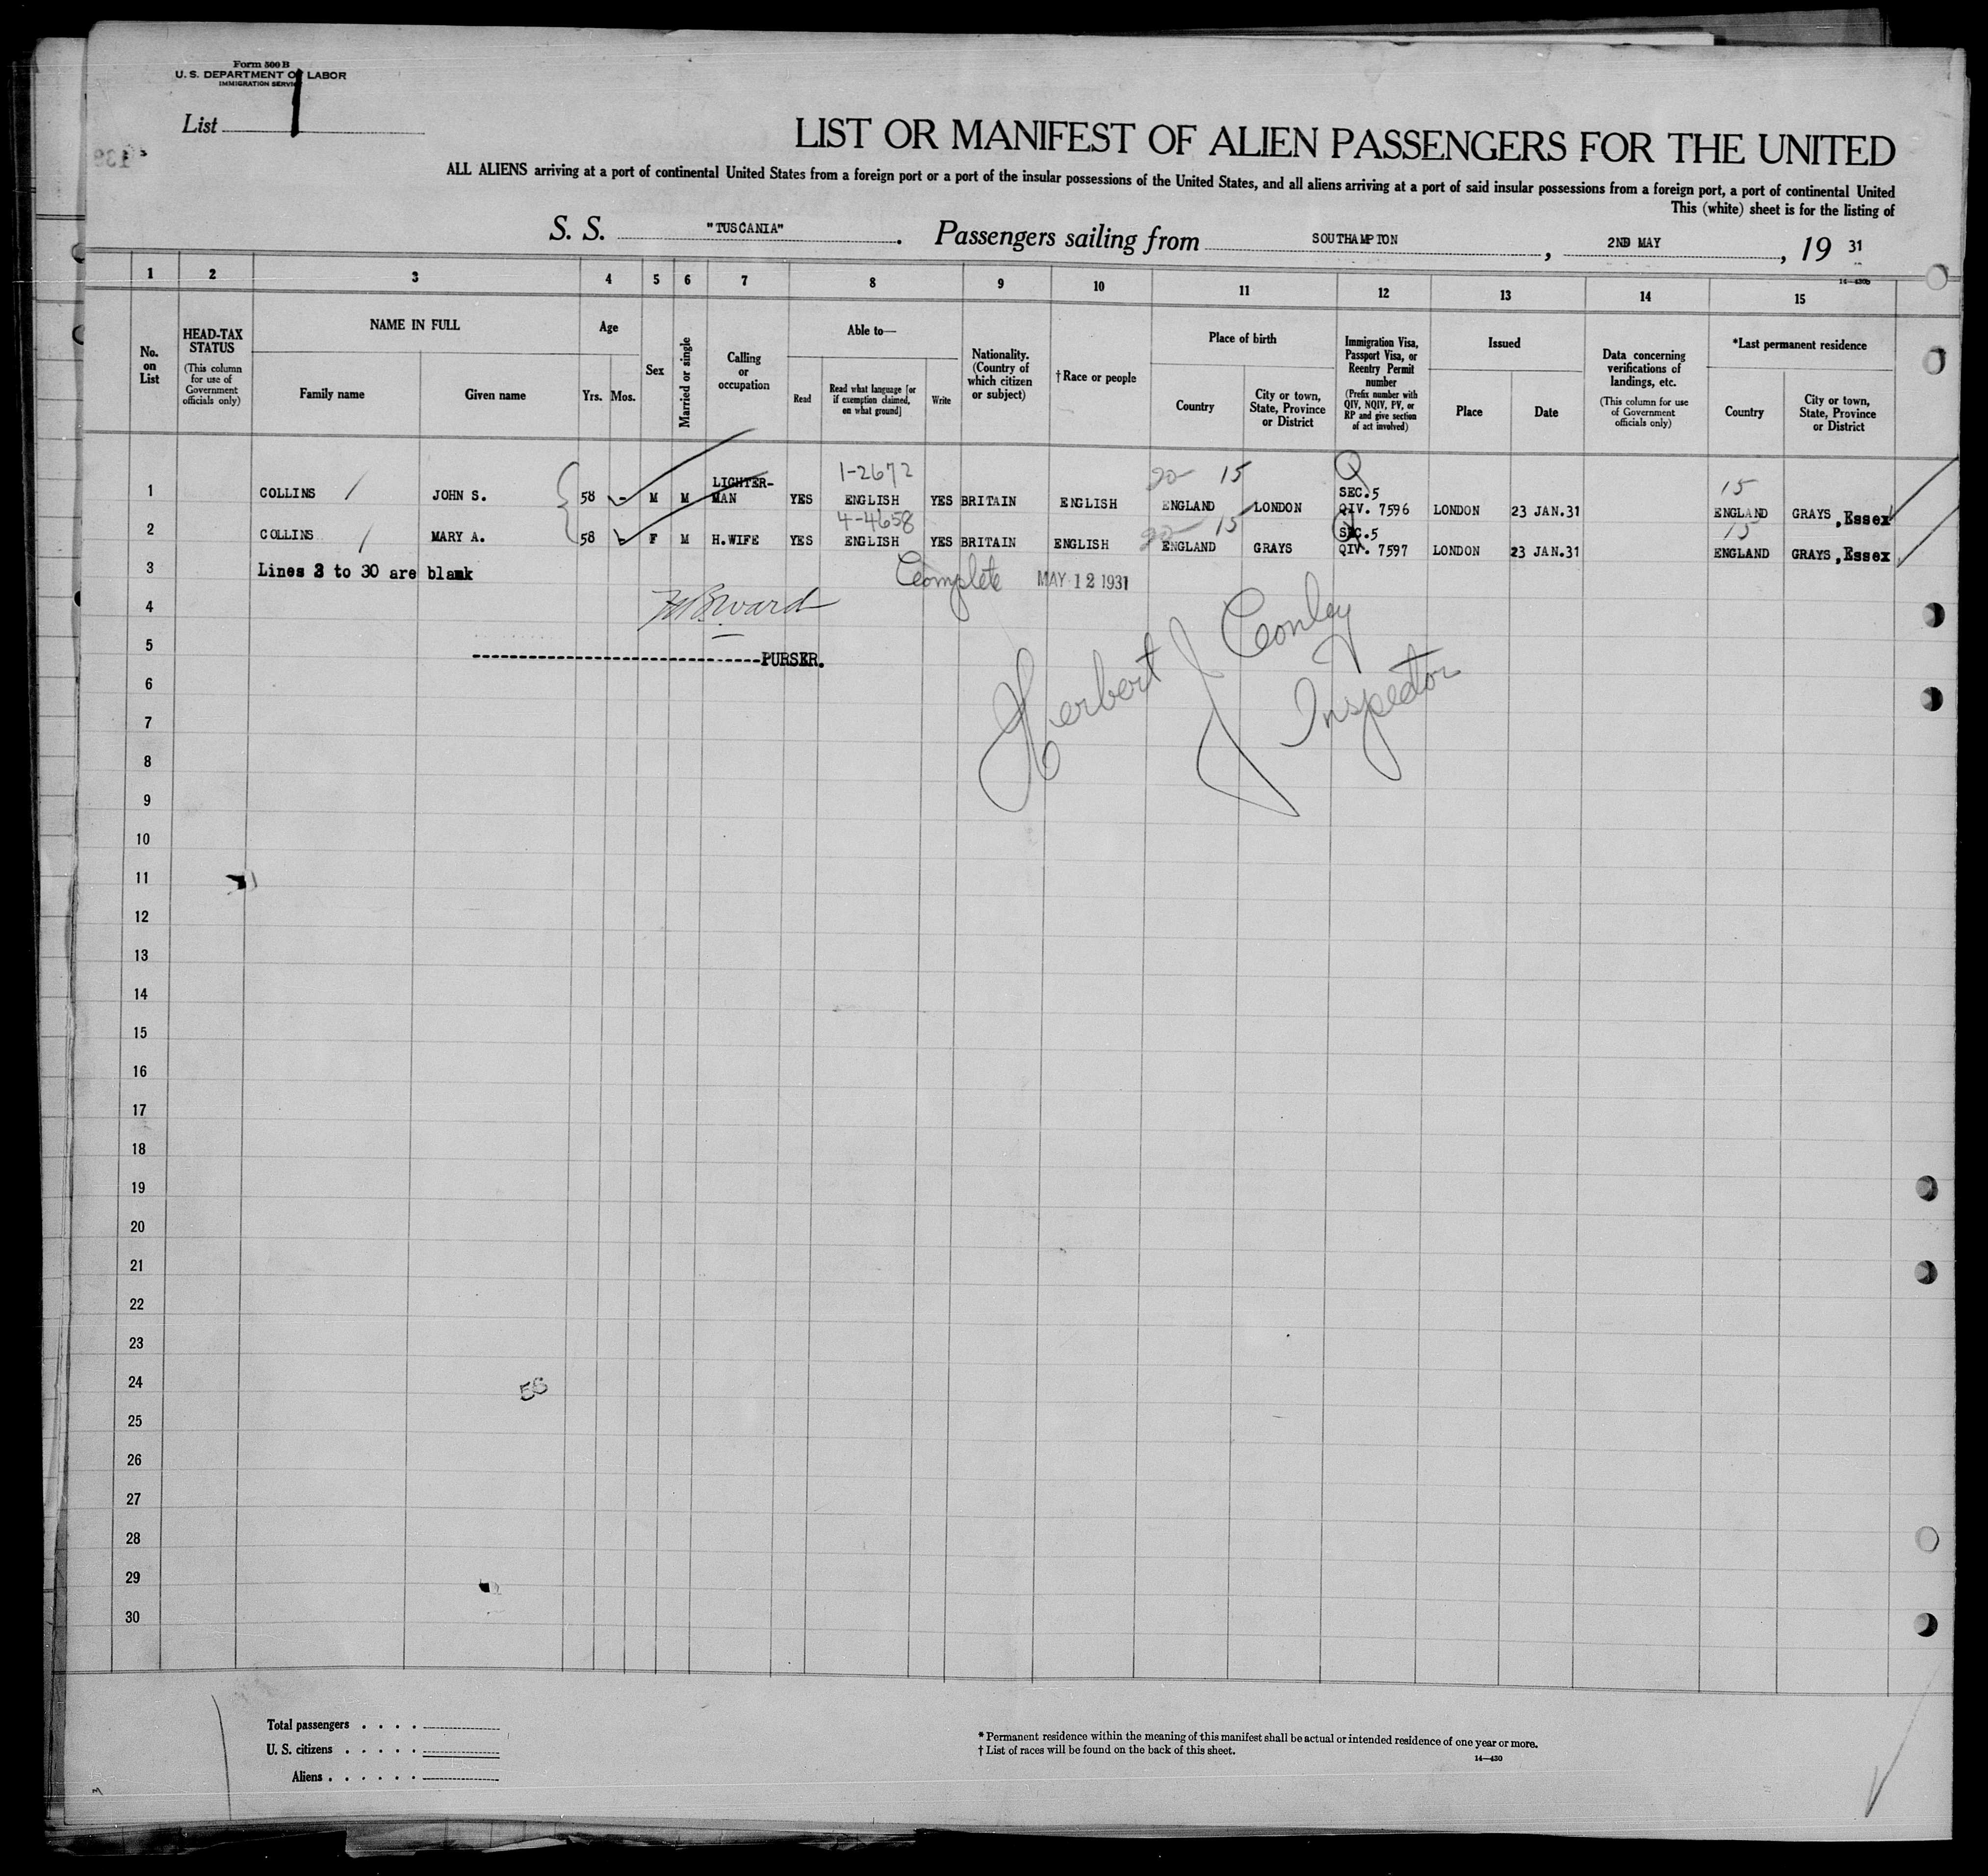 Form 500 B
U. S. DEPARTMENT OF LABOR
IMMIGRATION SERVICE
List 1
139
LIST OR MANIFEST OF ALIEN PASSENGERS FOR THE UNITED
ALL ALIENS arriving at a port of continental United States from a foreign port or a port of the insular possessions of the United States, and all aliens arriving at a port of said insular possessions from a foreign port, a port of continental United
This (white) sheet is for the listing of
S. S. "TUSCANIA". Passengers sailing from SOUTHAMPTON, 2ND MAY, 19 31
14—430b
1 2 3 4 5 6 7 8 9 10 11 12 13 14 15
No. on List
HEAD-TAX STATUS (This column for use of Government officials only)
NAME IN FULL
Family name
Given name
Age
Yrs. Mos.
Sex
Married or single
Calling or occupation
Able to—
Read
Read what language [or if exemption claimed, on what ground]
Write
Nationality. (Country of which citizen or subject)
†Race or people
Place of birth
Country
City or town, State, Province or District
Immigration Visa, Passport Visa, or Reentry Permit number (Prefix number with QIV, NQIV, PV, or RP and give section of act involved)
Issued
Place
Date
Data concerning verifications of landings, etc. (This column for use of Government officials only)
*Last permanent residence
Country
City or town, State, Province or District
1-2672 20 15 Q 15
1 COLLINS JOHN S. 58 - M M LIGHTER-MAN YES ENGLISH YES BRITAIN ENGLISH ENGLAND LONDON SEC.5 QIV. 7596 LONDON 23 JAN.31 ENGLAND GRAYS, Essex
4-4658 20 15 Q 15
2 COLLINS MARY A. 58 - F M H.WIFE YES ENGLISH YES BRITAIN ENGLISH ENGLAND GRAYS SEC.5 QIV. 7597 LONDON 23 JAN.31 ENGLAND GRAYS, Essex
3 Lines 3 to 30 are blank Complete MAY 12 1931
4
5 PURSER.
Herbert J Conley
Inspector
6
7
8
9
10
11
12
13
14
15
16
17
18
19
20
21
22
23
24
25
26
27
28
29
30
Total passengers . . . .
U. S. citizens . . . . .
Aliens . . . . . .
* Permanent residence within the meaning of this manifest shall be actual or intended residence of one year or more.
† List of races will be found on the back of this sheet.
14—430